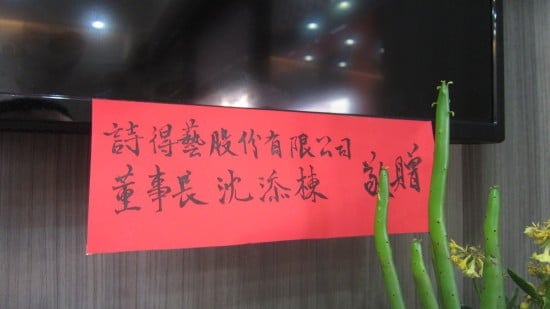 詩得藝股份有限公司
董事長 沈添棟 敬贈